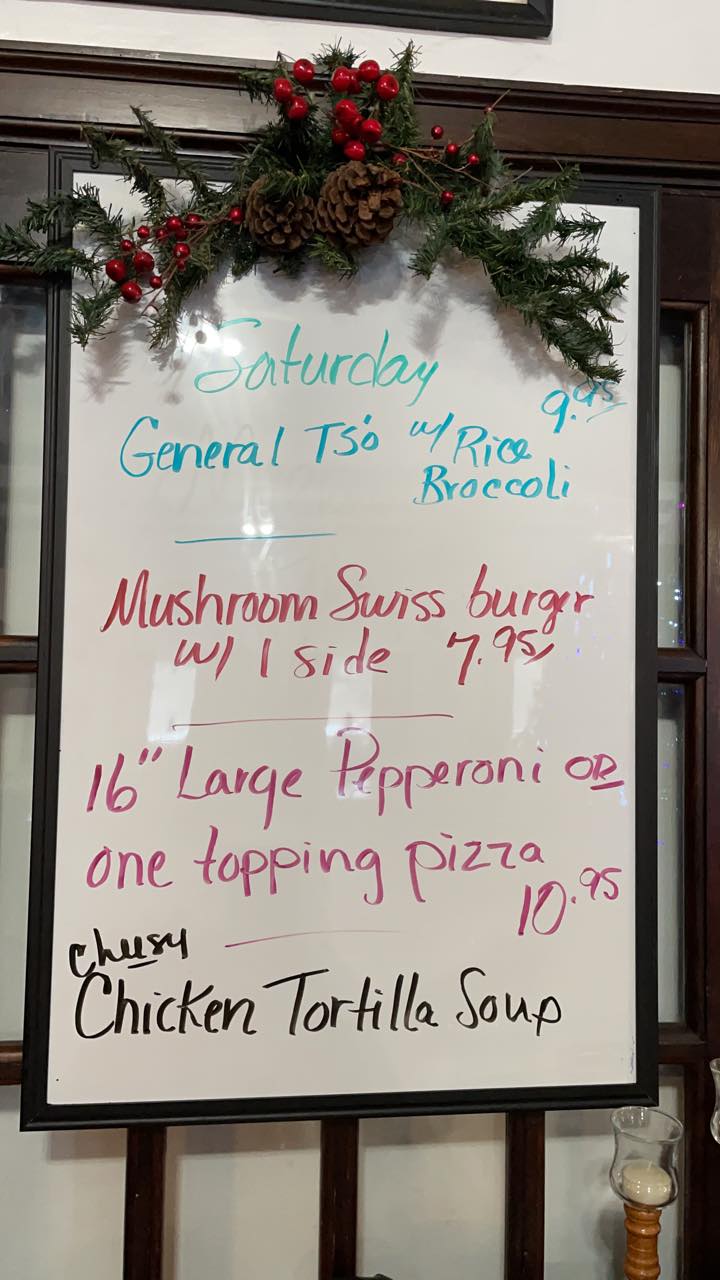 Saturday
General TSó w/ Rice 9.95
Broccoli
Mushroom Swiss burger
w/ 1 side 7.95
16" Large Pepperoni OR
one topping pizza
10.95
Cheesy
Chicken Tortilla Soup